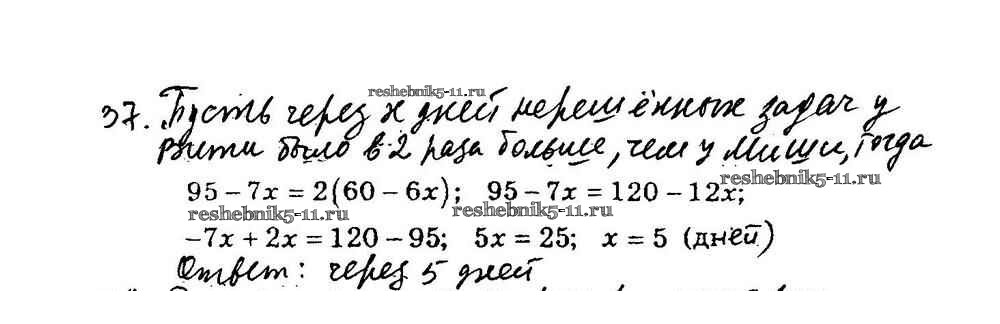 reshebnik5-11.ru
37. Пусть через x дней нерешённых задач у
Вити было в 2 раза больше, чем у Миши, тогда
reshebnik5-11.ru
95 – 7x = 2(60 – 6x); 95 – 7x = 120 – 12x;
reshebnik5-11.ru reshebnik5-11.ru
–7x + 2x = 120 – 95; 5x = 25; x = 5 (дней)
Ответ: через 5 дней